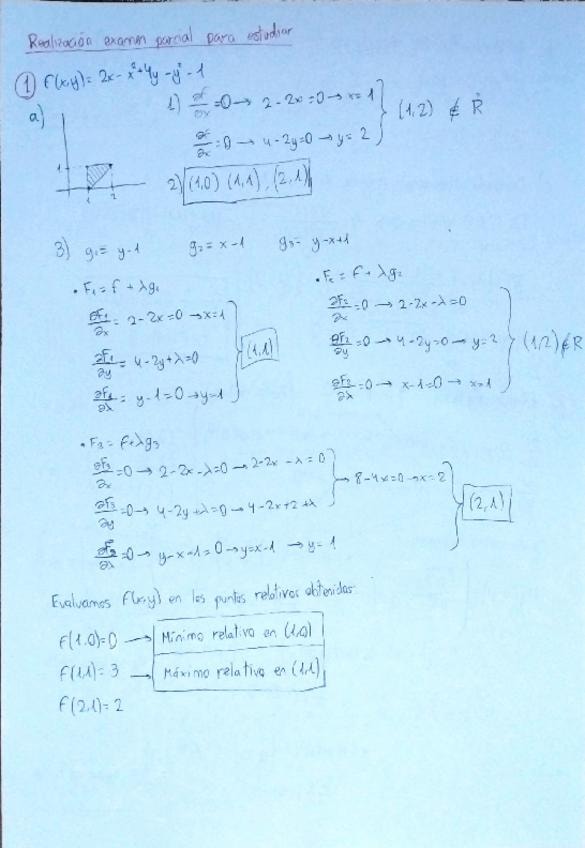 Realización examen parcial para estudiar
① f(x,y)= 2x-x²+4y-y²-1
a)
1) ∂f/∂x =0 → 2-2x=0 → x=1
∂f/∂x =0 → 4-2y=0 → y=2
(1,2) ∉ R̊
1
1 2
2) (1,0) (1,1), (2,1)
3) g₁= y-1 g₂= x-1 g₃= y-x+1
• F₁= f + λg₁
∂F₁/∂x = 2-2x=0 → x=1
∂F₁/∂y = 4-2y+λ=0
∂F₁/∂λ = y-1=0 → y=1
(1,1)
• F₂= f + λg₂
∂F₂/∂x =0 → 2-2x-λ=0
∂F₂/∂y =0 → 4-2y=0 → y=2
∂F₂/∂λ =0 → x-1=0 → x=1
(1,2) ∉ R
• F₃= f+λg₃
∂F₃/∂x =0 → 2-2x-λ=0 → 2-2x-λ=0
∂F₃/∂y =0 → 4-2y+λ=0 → 4-2x+2+λ
→ 8-4x=0 → x=2
∂F₃/∂λ =0 → y-x+1=0 → y=x-1 → y=1
(2,1)
Evaluamos f(x,y) en los puntos relativos obtenidos
f(1,0)=0 → Mínimo relativo en (1,0)
f(1,1)= 3 → Máximo relativo en (1,1)
f(2,1)=2